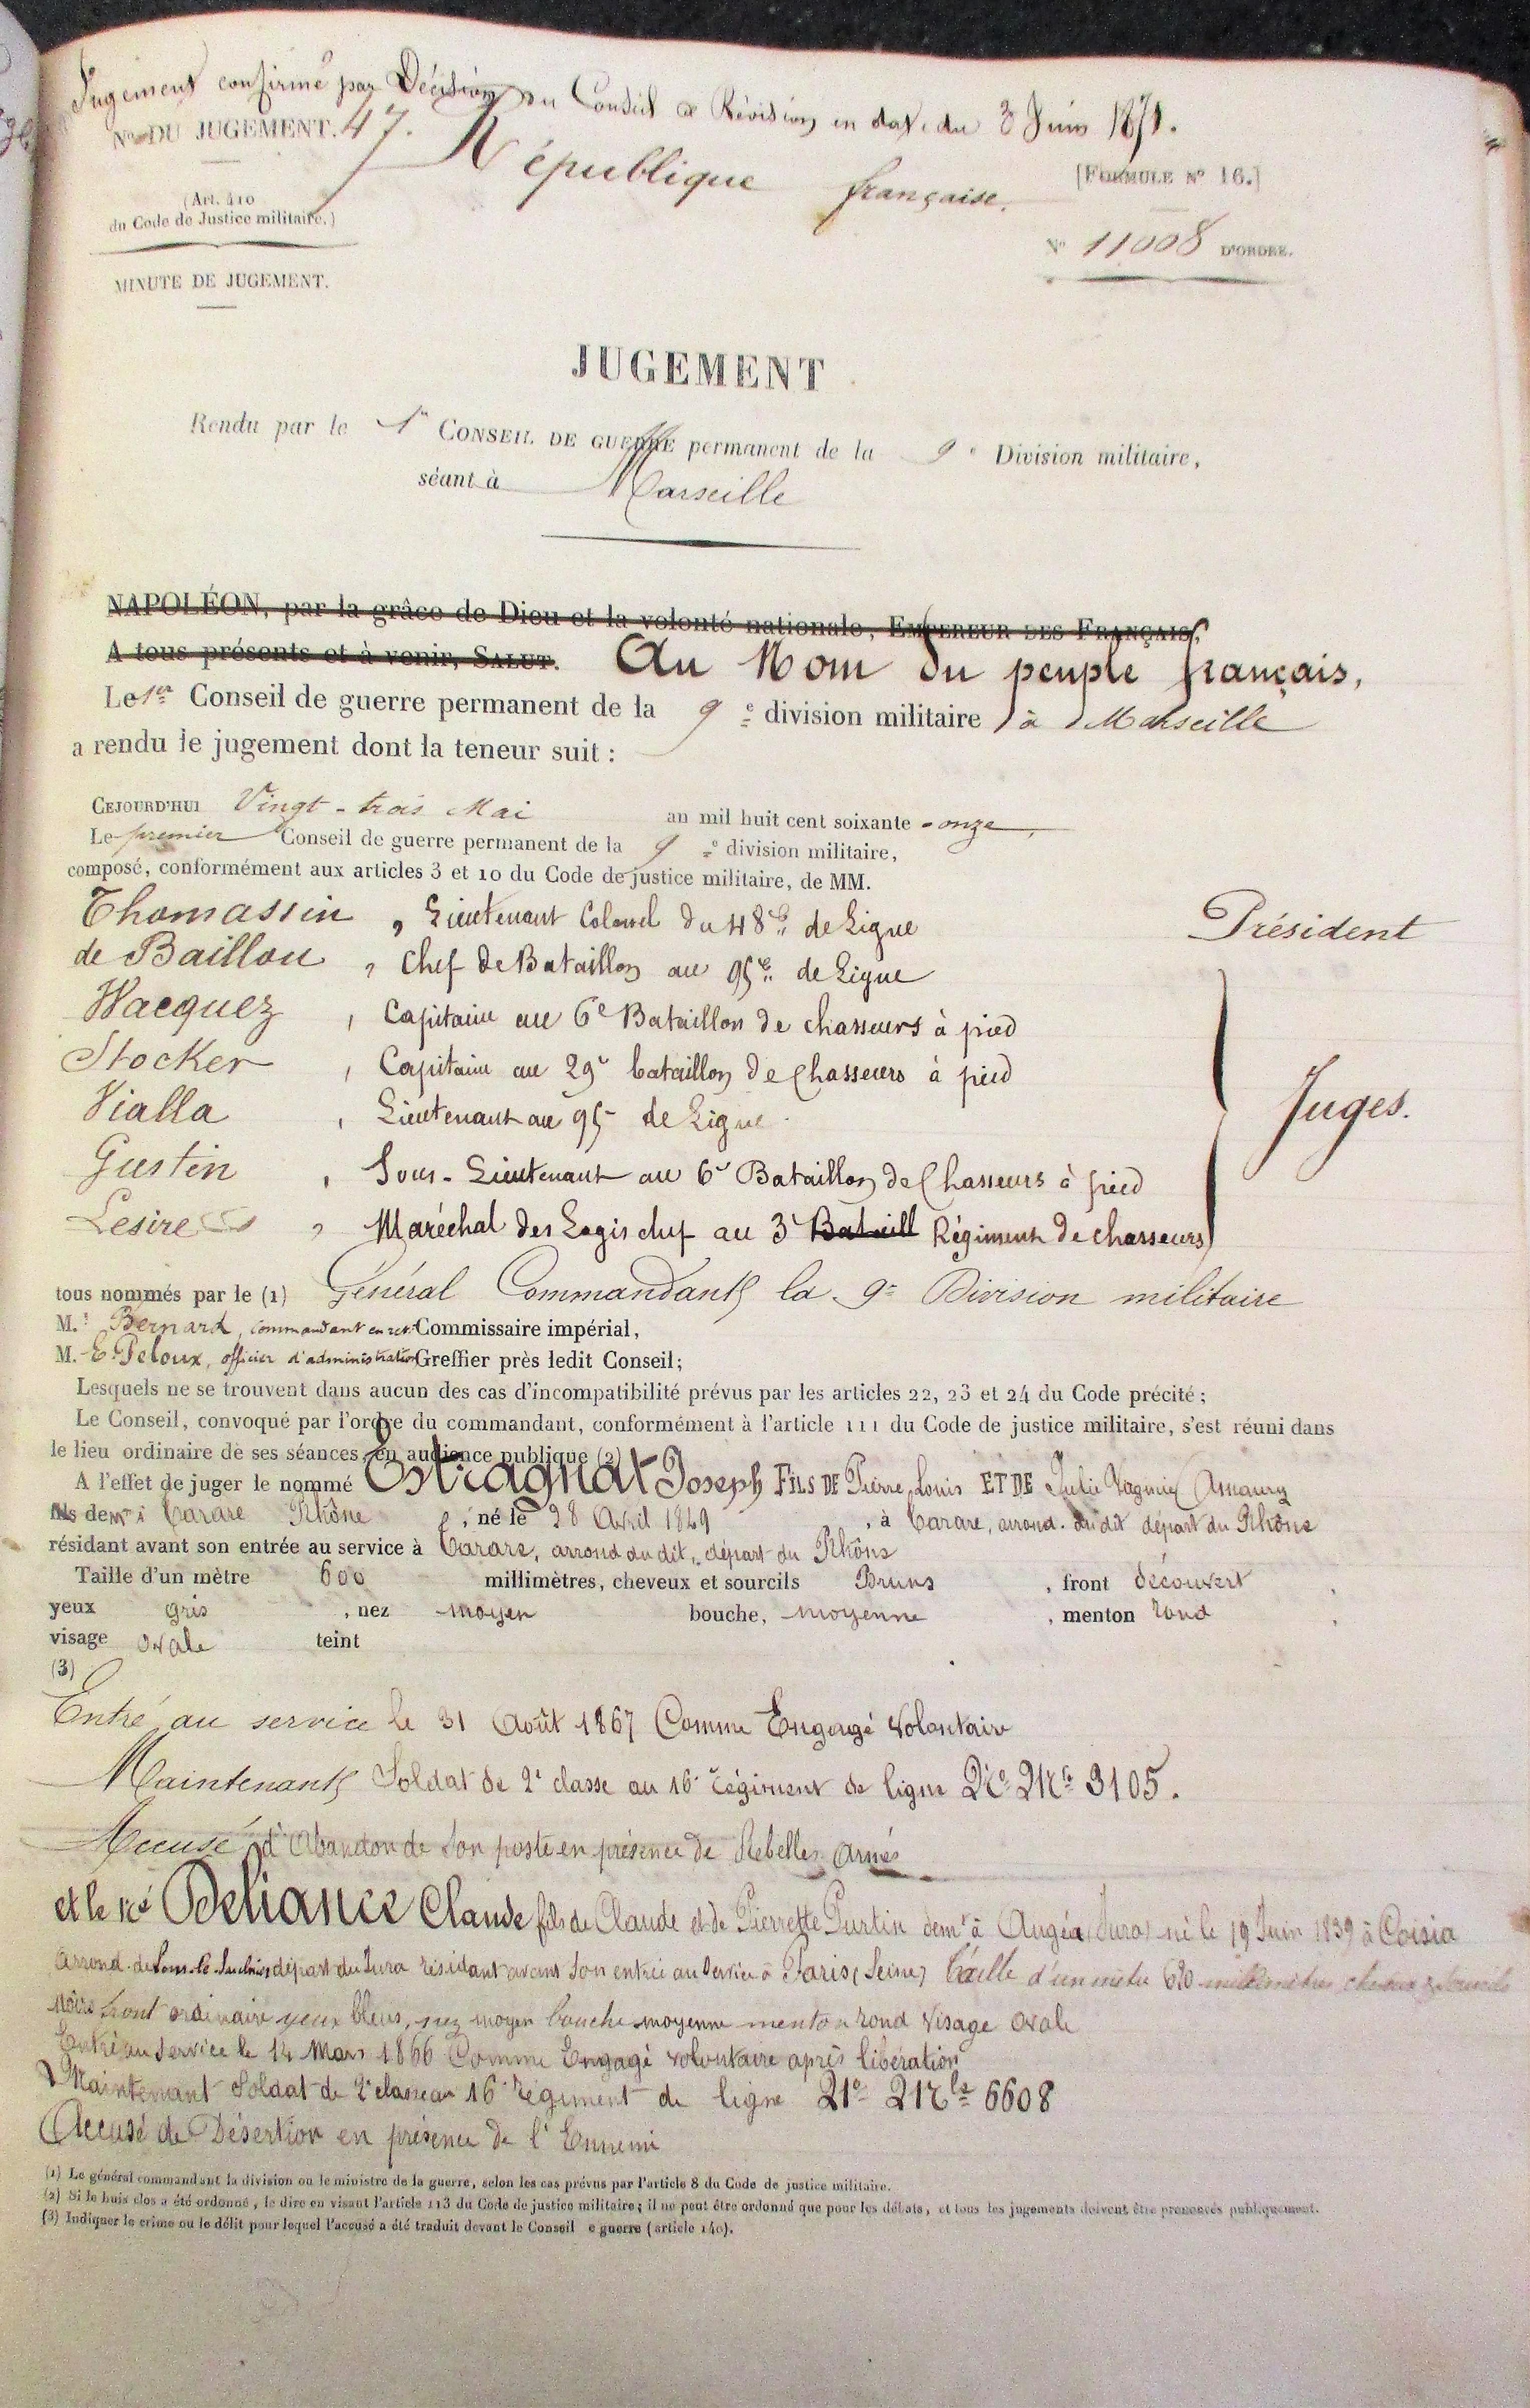 Jugement confirmé par Décision du Conseil de Révision en date du 3 Juin 1871.
No DU JUGEMENT. 47.
République française.
[FORMULE No 16.]
(Art. 410
du Code de Justice militaire.)
No 11008 D'ORDRE.
MINUTE DE JUGEMENT.
JUGEMENT
Rendu par le 1er CONSEIL DE GUERRE permanent de la 9e Division militaire,
séant à Marseille
NAPOLÉON, par la grâce de Dieu et la volonté nationale, EMPEREUR DES FRANÇAIS,
A tous présents et à venir, SALUT. Au Nom du peuple français,
Le 1er Conseil de guerre permanent de la 9e division militaire à Marseille
a rendu le jugement dont la teneur suit :
CEJOURD'HUI Vingt-trois Mai an mil huit cent soixante-onze,
Le premier Conseil de guerre permanent de la 9e division militaire,
composé, conformément aux articles 3 et 10 du Code de justice militaire, de MM.
Thomassin, Lieutenant Colonel du 48e de Ligne Président
de Baillou, Chef de Bataillon au 95e de Ligne
Wacquez, Capitaine au 6e Bataillon de chasseurs à pied
Stocker, Capitaine au 29e bataillon de Chasseurs à pied
Vialla, Lieutenant au 95 de Ligne
Juges.
Gustin, Sous-Lieutenant au 6e Bataillon de Chasseurs à pied
Lesire, Maréchal des Logis chef au 3e Bataill Régiment de chasseurs
tous nommés par le (1) Général Commandant la 9e Division militaire
M. Bernard, commandant en ret. Commissaire impérial,
M. E. Peloux, officier d'administration Greffier près ledit Conseil;
Lesquels ne se trouvent dans aucun des cas d'incompatibilité prévus par les articles 22, 23 et 24 du Code précité;
Le Conseil, convoqué par l'ordre du commandant, conformément à l'article 111 du Code de justice militaire, s'est réuni dans
le lieu ordinaire de ses séances, en audience publique (2)
A l'effet de juger le nommé Estragnat Joseph FILS DE Pierre Louis ET DE Julie Amaury
fils de à Tarare Rhône, né le 28 Avril 1849, à Tarare, arrond. dudit départ du Rhône
résidant avant son entrée au service à Tarare, arrond du dit, départ du Rhône
Taille d'un mètre 600 millimètres, cheveux et sourcils Bruns, front découvert
yeux gris, nez moyen bouche, moyenne, menton rond
visage ovale teint
(3)
Entré au service le 31 Août 1867 Comme Engagé Volontaire
Maintenant Soldat de 2e classe au 16e régiment de ligne 3105.
Accusé d'Abandon de Son poste en présence de Rebelles Armés
et le né Deliance Claude fils de Claude et de Pierrette Purtin demt à Augéa (Jura) né le 19 Juin 1839 à Coisia
arrond. de Lons-le-Saulnier départ du Jura résidant avant son entrée au Service à Paris (Seine) Taille d'un mètre 620 millimètres cheveux & sourcils
Noirs front ordinaire yeux bleus, nez moyen bouche moyenne menton rond Visage ovale
Entré au Service le 14 Mars 1866 Comme Engagé volontaire après libération
Maintenant Soldat de 2e classe au 16e régiment de ligne 6608
Accusé de Désertion en présence de l'Ennemi
(1) Le général commandant la division ou le ministre de la guerre, selon les cas prévus par l'article 8 du Code de justice militaire.
(2) Si le huis clos a été ordonné, le dire en visant l'article 113 du Code de justice militaire; il ne peut être ordonné que pour les débats, et tous les jugements doivent être prononcés publiquement.
(3) Indiquer le crime ou le délit pour lequel l'accusé a été traduit devant le Conseil e guerre (article 140).